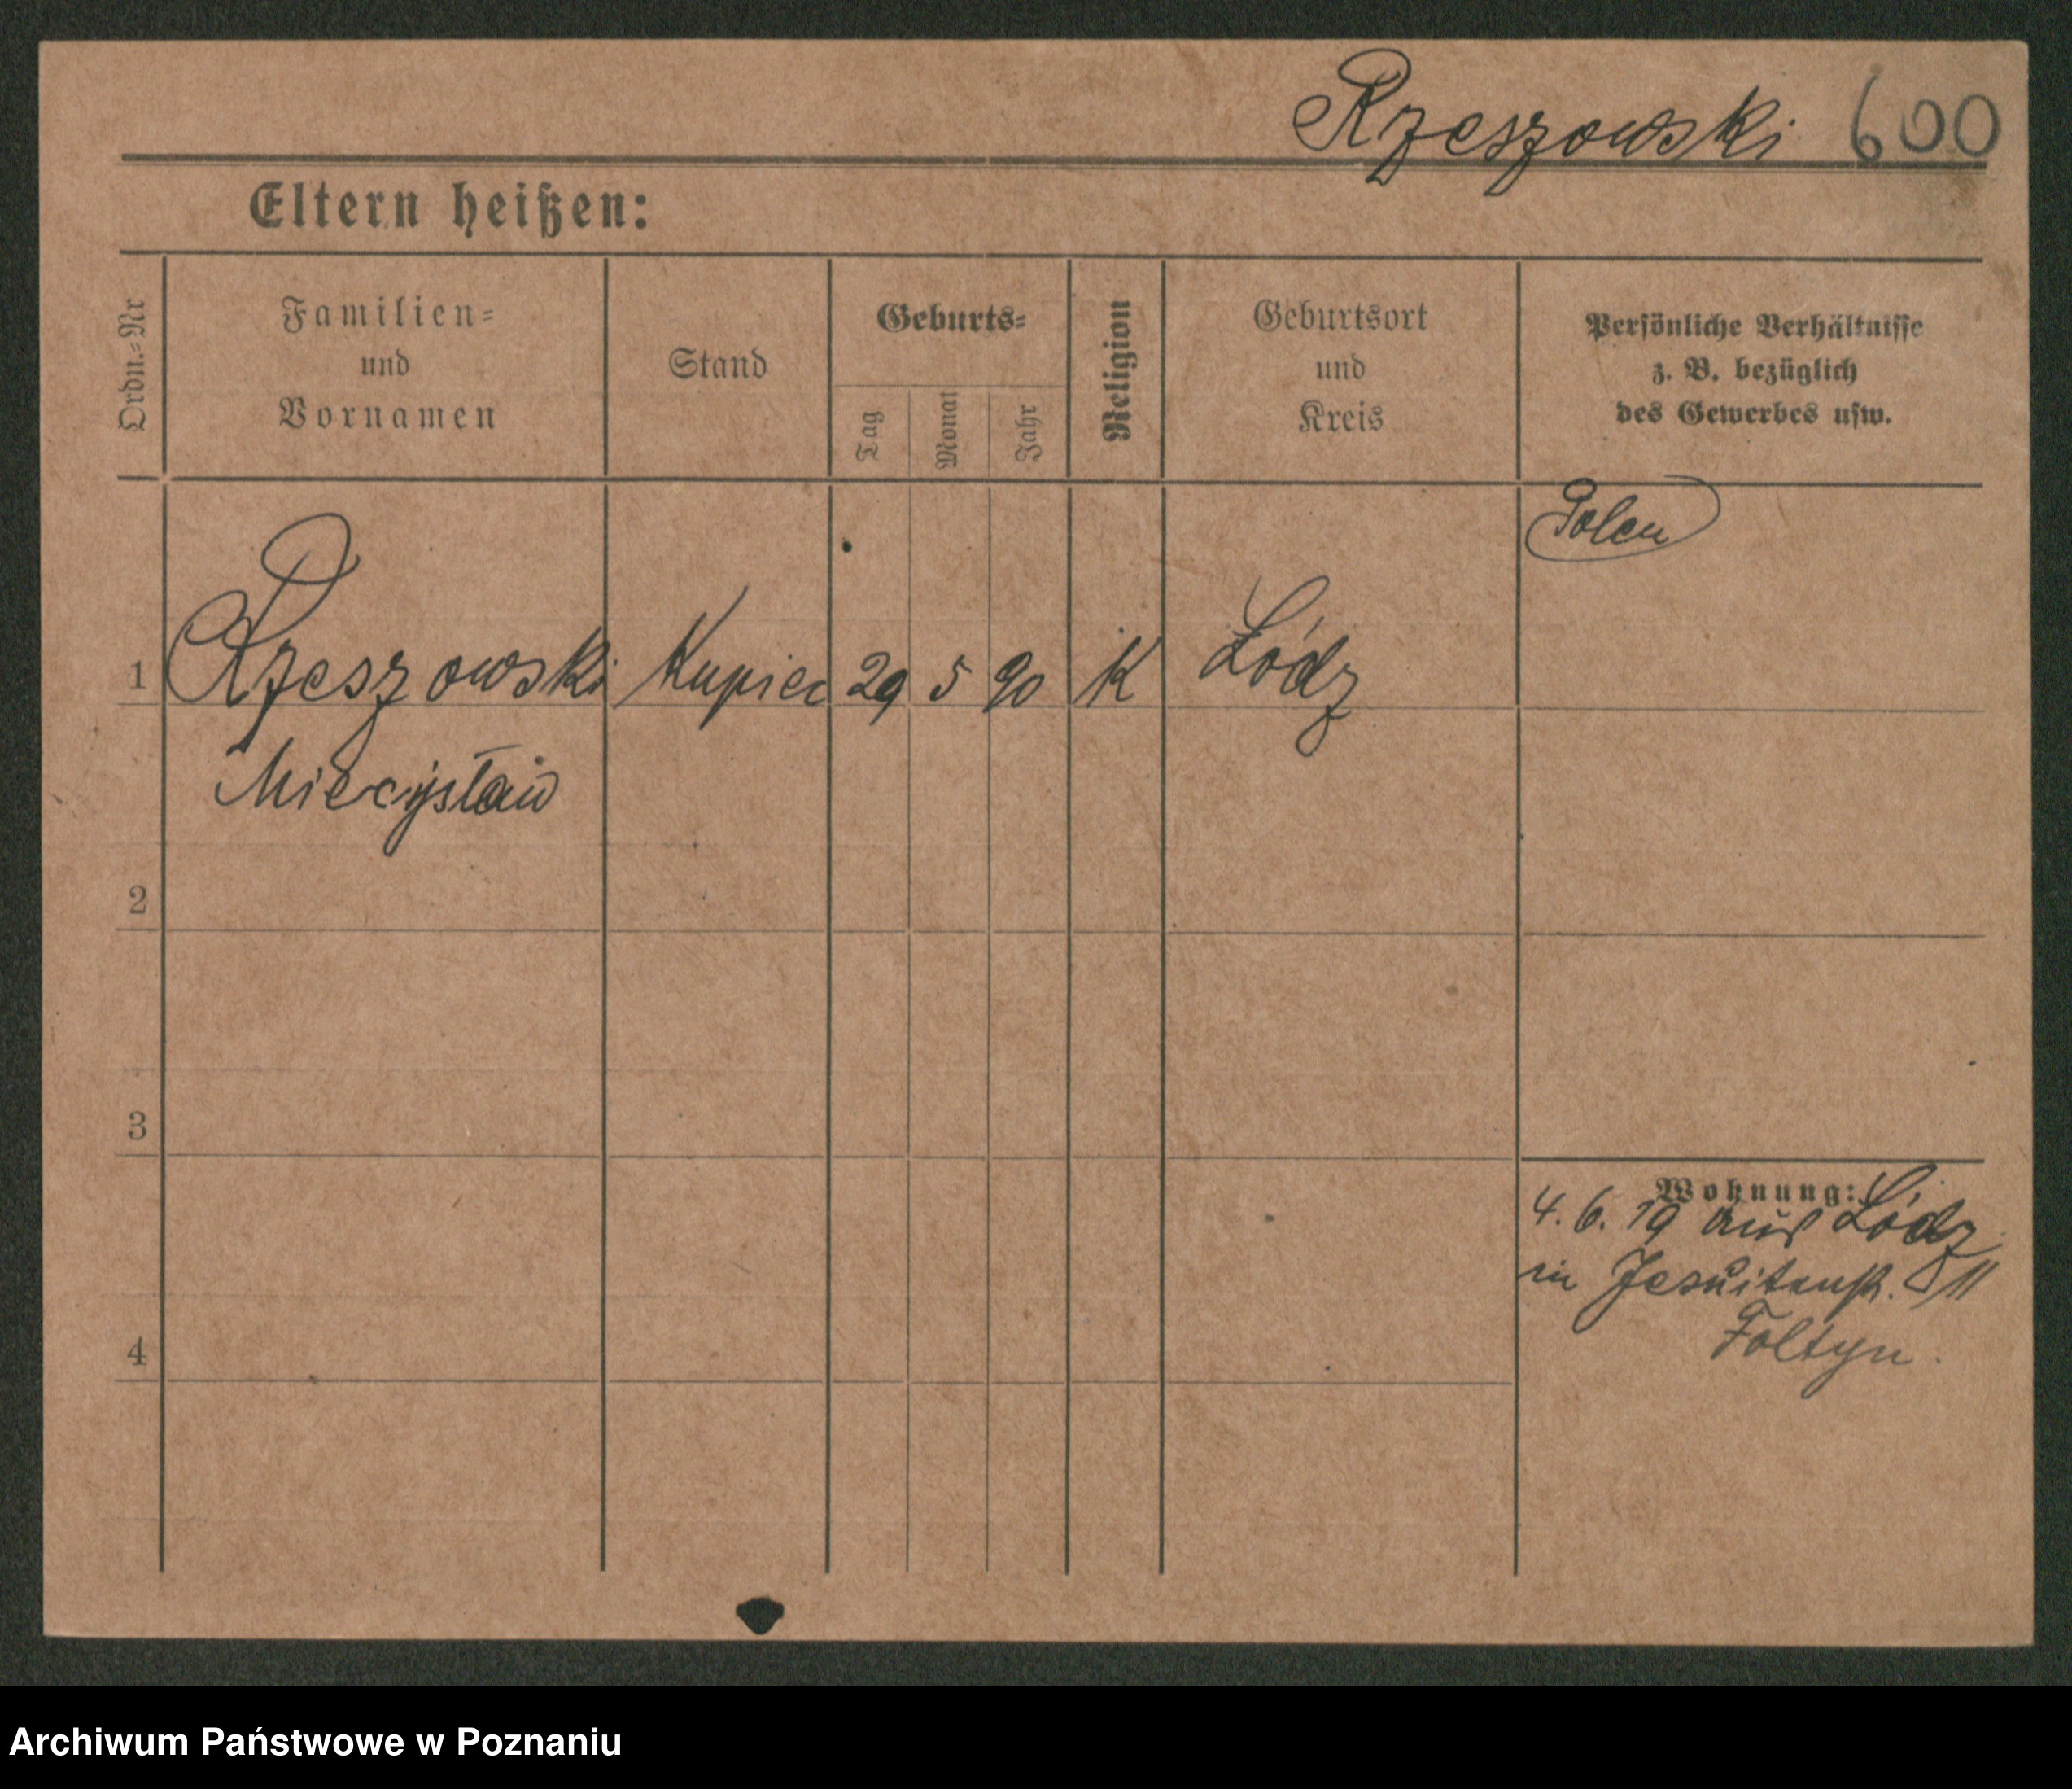 Rzeszowski 600
Eltern heißen:
Ordn.=Nr
Familien=
und
Vornamen
Stand
Geburts=
Tag
Monat
Jahr
Religion
Geburtsort
und
Kreis
Persönliche Verhältnisse
z. B. bezüglich
des Gewerbes usw.
Polen
1 Rzeszowski Kupiec 29 5 90 K Łódz
Miecysław
2
3
Wohnung:
4. 6. 19 aus Łódz
in Jesuitenstr. 11
4
Foltyn.
Archiwum Państwowe w Poznaniu